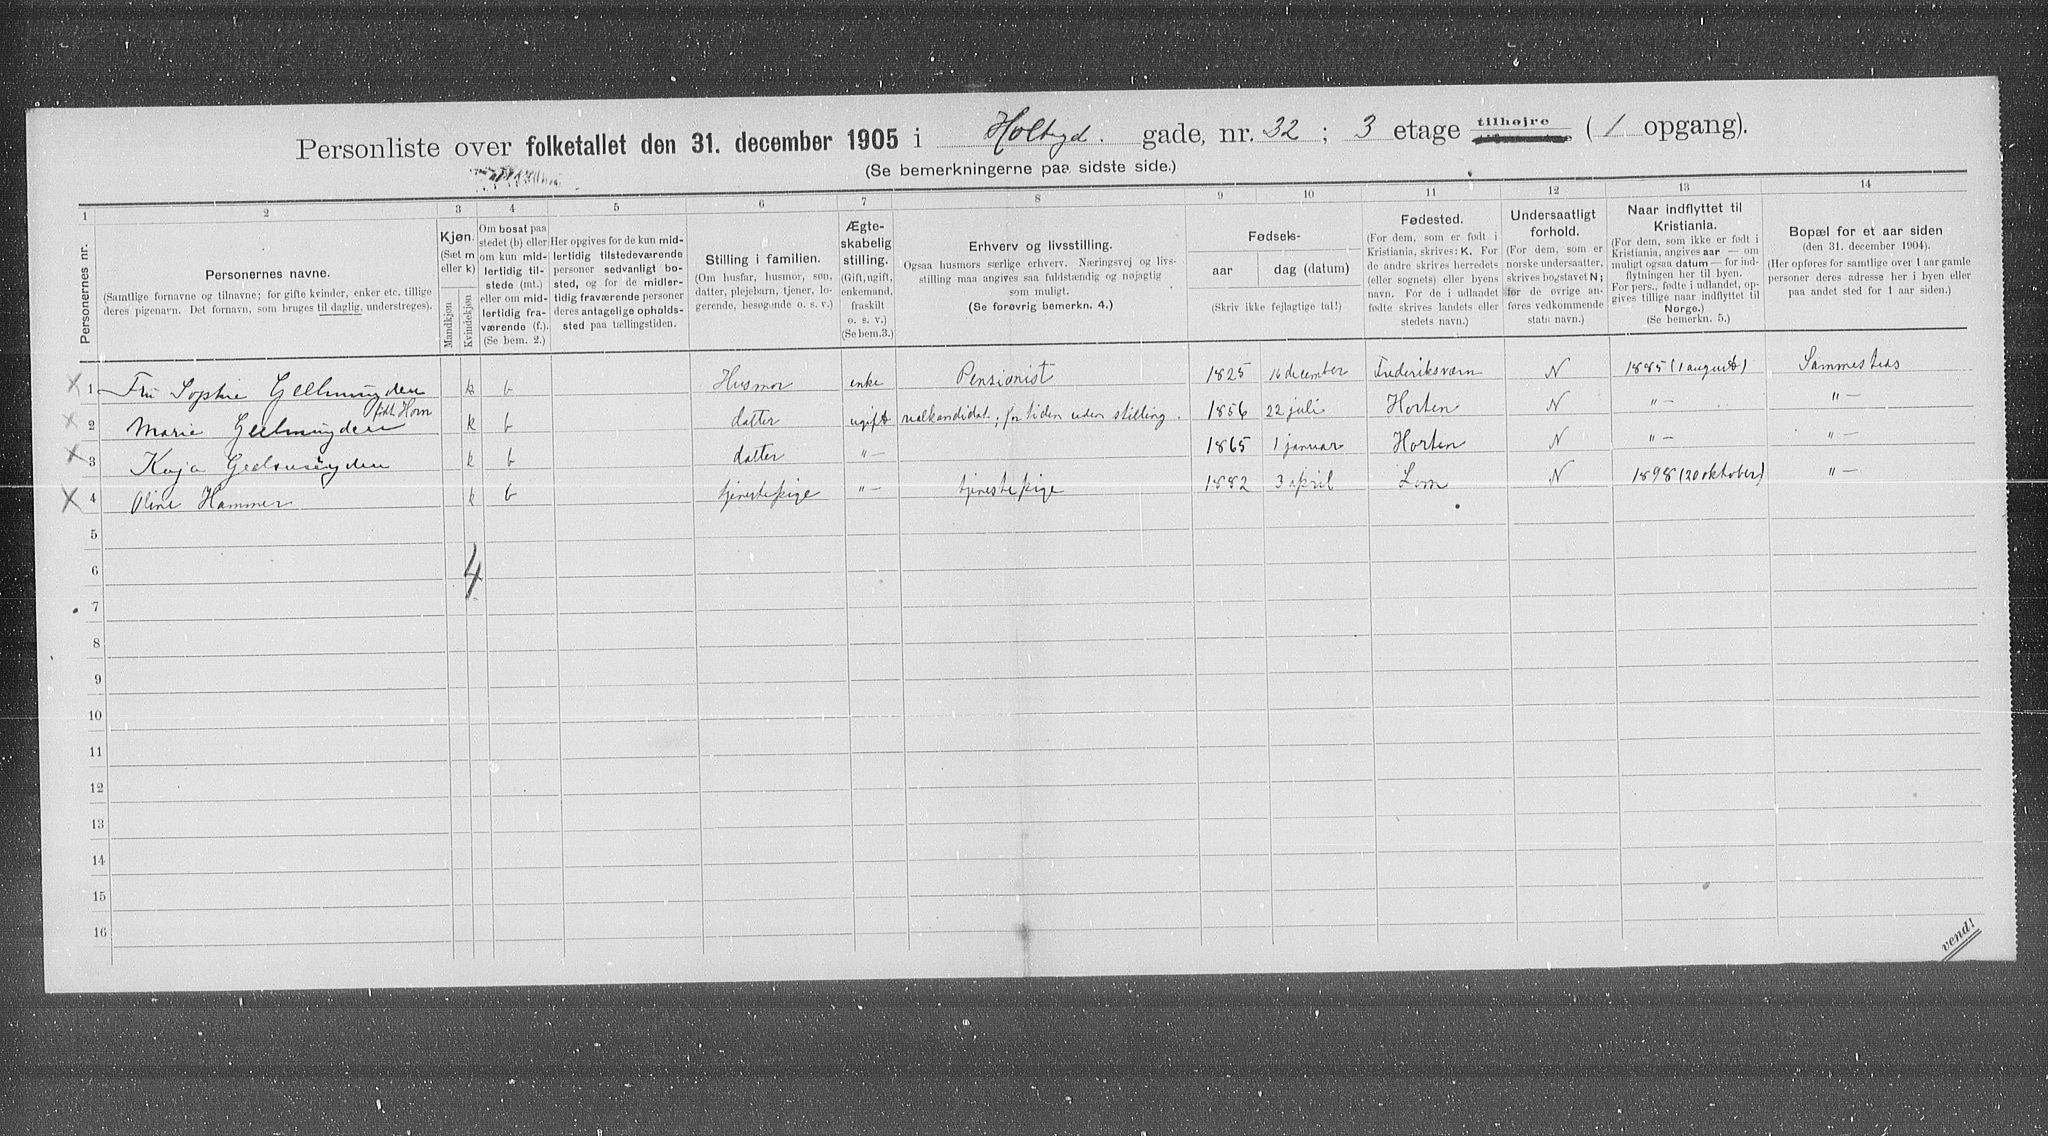 Personliste over folketallet den 31. december 1905 i Holtegd. gade, nr. 32 ; 3 etage tilhøjre ( 1 opgang).
(Se bemerkningerne paa sidste side.)
1 2 3 4 5 6 7 8 9 10 11 12 13 14
Personernes nr.
Personernes navne.
(Samtlige fornavne og tilnavne; for gifte kvinder, enker etc. tillige
deres pigenavn. Det fornavn, som bruges til daglig, understreges).
Kjøn.
(Sæt m
eller k)
Mandkjøn
Kvindekjøn
Om bosat paa
stedet (b) eller
om kun mid-
lertidig til-
stede (mt.)
eller om mid-
lertidig fra-
værende (f.).
(Se bem. 2.)
Her opgives for de kun mid-
lertidig tilstedeværende
personer sedvanligt bo-
sted, og for de midler-
tidig fraværende personer
deres antagelige opholds-
sted paa tællingstiden.
Stilling i familien.
(Om husfar, husmor, søn,
datter, plejebarn, tjener, lo-
gerende, besøgende o. s. v.)
Ægte-
skabelig
stilling.
(Gift, ugift,
enkemand,
fraskilt
o. s. v.)
(Se bem.3.)
Erhverv og livsstilling.
Ogsaa husmors særlige erhverv. Næringsvej og livs-
stilling maa angives saa fuldstændig og nøjagtig
som muligt.
(Se forøvrig bemerkn. 4.)
Fødsels-
aar dag (datum)
(Skriv ikke fejlagtige tal!)
Fødested.
(For dem, som er født i
Kristiania, skrives: K. For
de andre skrives herredets
(eller sognets) eller byens
navn. For de i udlandet
fødte skrives landets eller
stedets navn.)
Undersaatligt
forhold.
(For dem, som er
norske undersaatter,
skrives bogstavet N;
for de øvrige an-
føres vedkommende
stats navn.)
Naar indflyttet til
Kristiania.
(For dem, som ikke er født i
Kristiania, angives aar — om
muligt ogsaa datum — for ind-
flytningen her til byen.
For pers., fødte i udlandet, op-
gives tillige naar indflyttet til
Norge.)
(Se bemerkn. 5.)
Bopæl for et aar siden
(den 31. december 1904).
(Her opføres for samtlige over 1 aar gamle
personer deres adresse her i byen eller
paa andet sted for 1 aar siden.)
1 Fru Sophie Geelmuyden k b Husmor enke Pensionist 1825 16 december Frederiksværn N 1885 (1 august) Sammesteds
født Horn
2 Marie Geelmuyden k b datter ugift realkandidat; for tiden uden stilling. 1856 22 juli Horten N "— "—
3 Kaja Geelmuyden k b datter "— 1865 1 januar Horten N "— "—
4 Oline Hammer k b tjenestepige "— tjenestepige 1882 3 april Lom N 1898 (20 oktober) "—
5
6 4
7
8
9
10
11
12
13
14
15
16
vend!